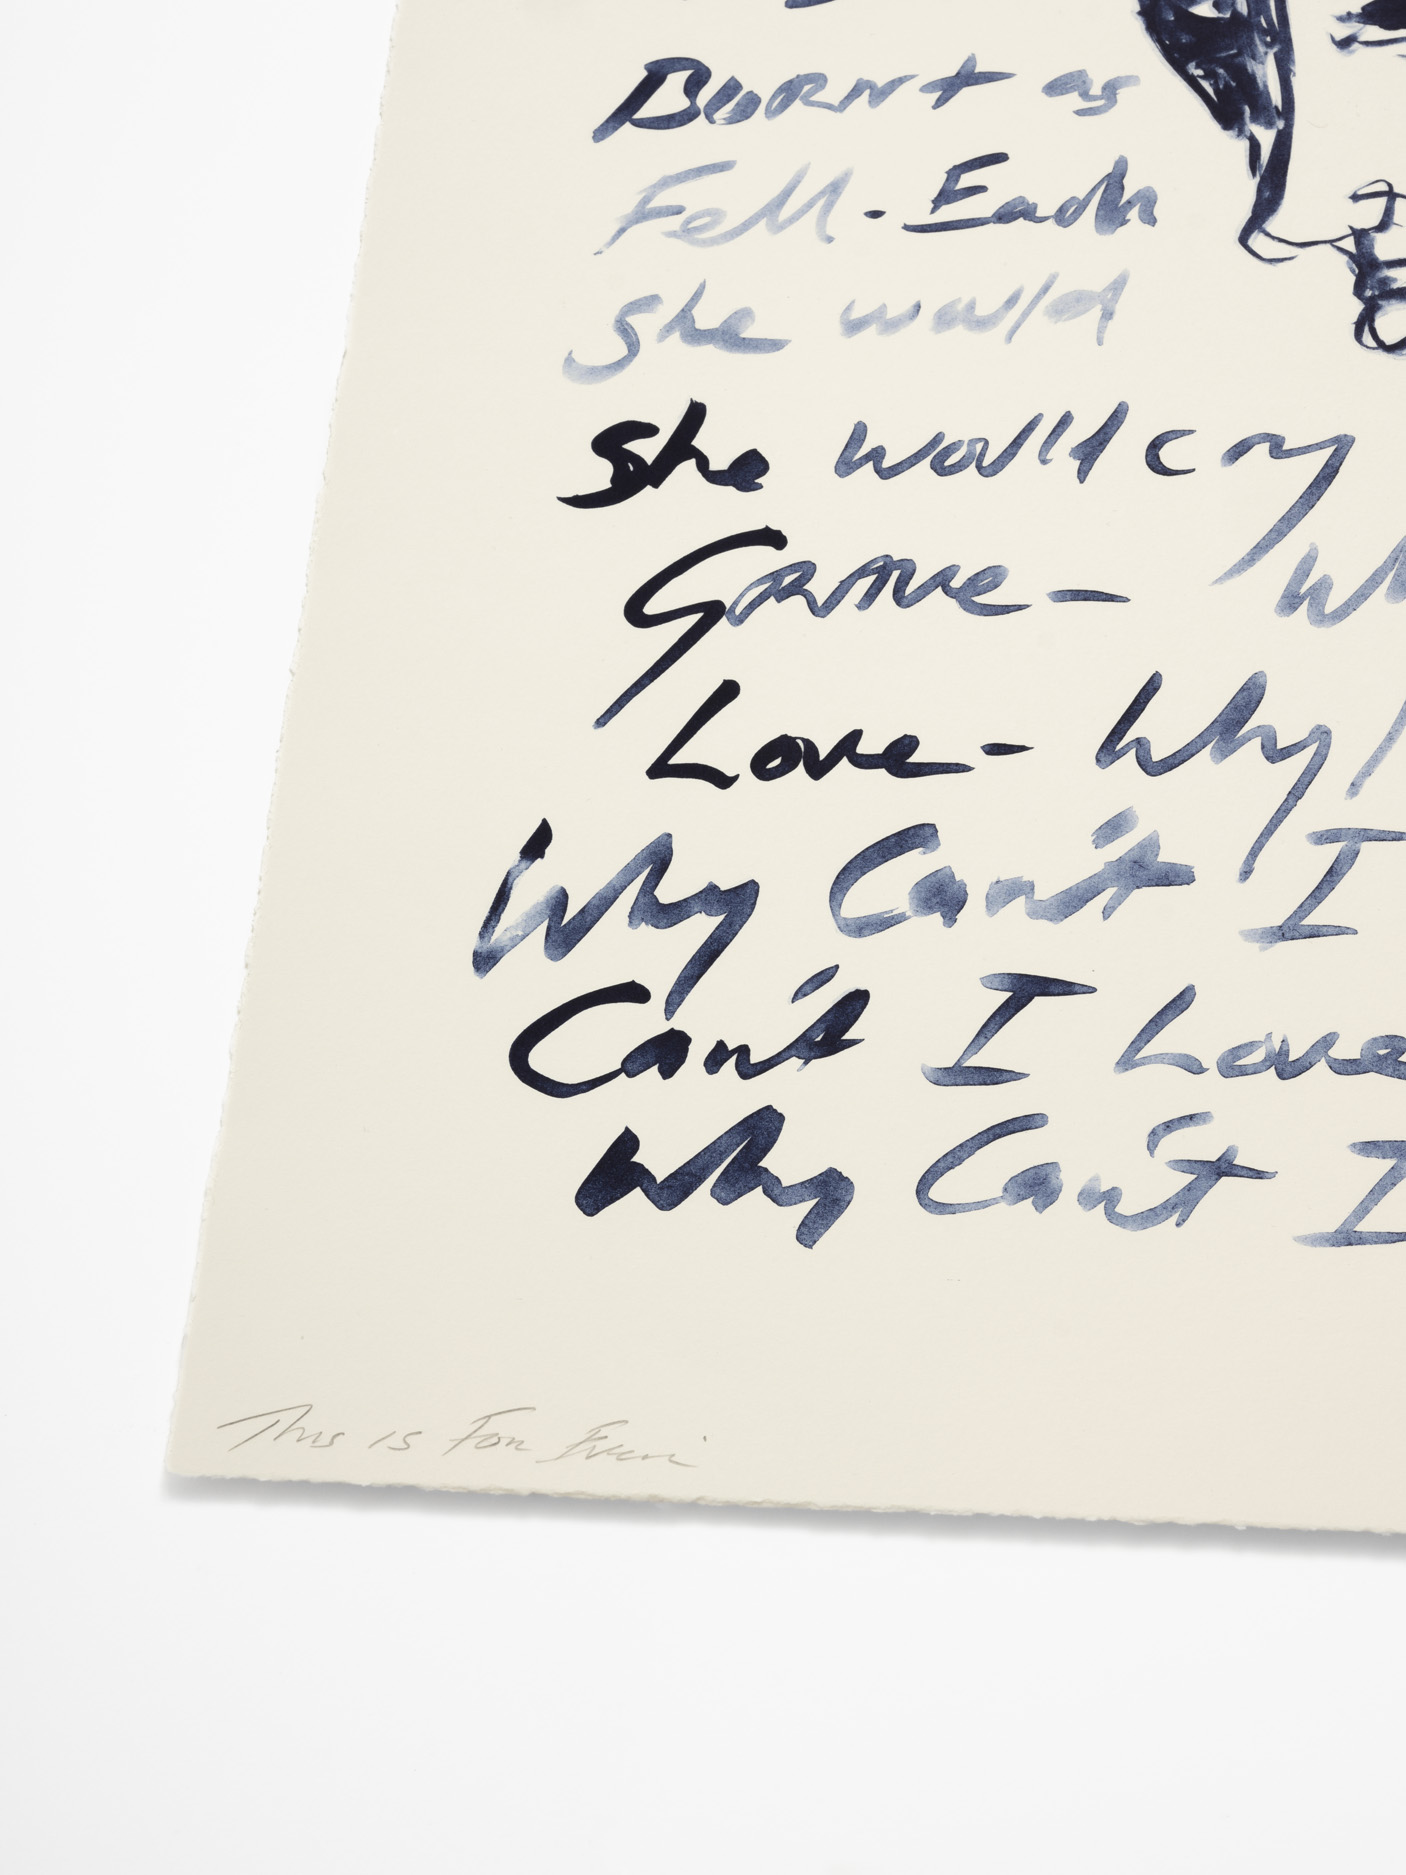 Burnt as
Fell. Each
She would
She would cry
Grave - Wh
Love - Why
Why Can't I
Can't I Love
Why Can't I
This is For